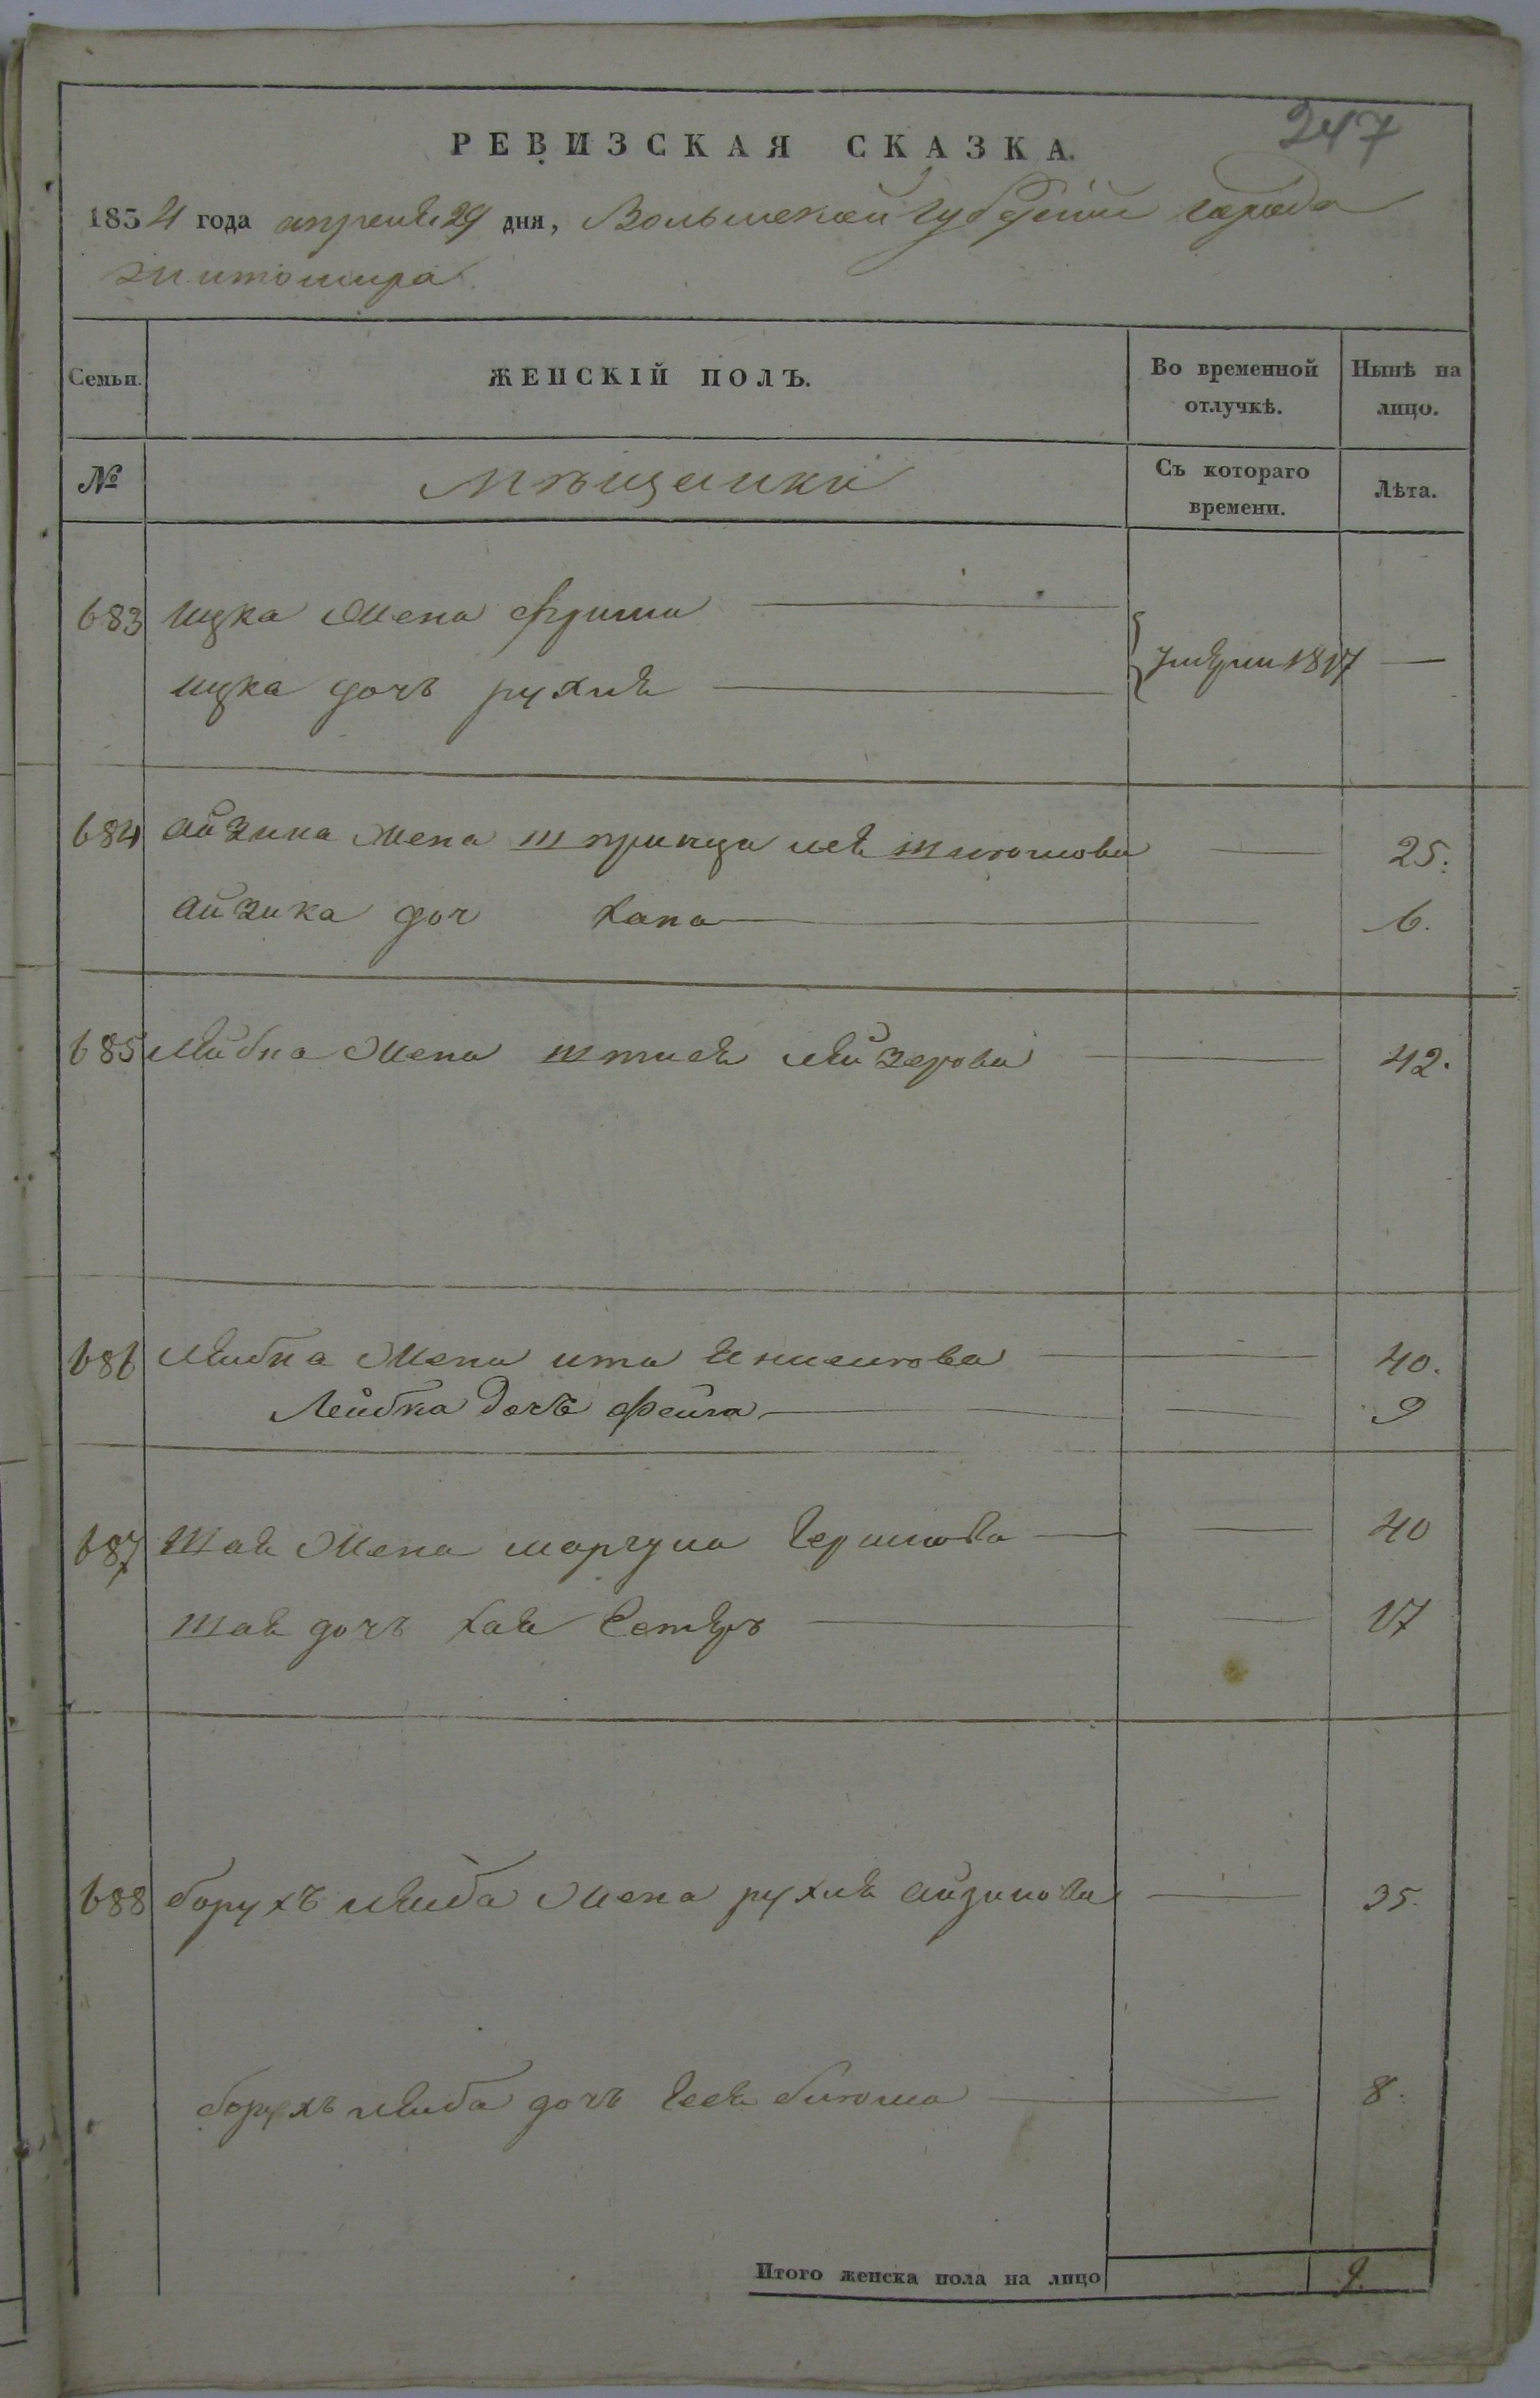 247
РЕВИЗСКАЯ СКАЗКА.
1834 года апреля 29 дня, Волынской Губернии города
житомира
Семьи.
ЖЕНСКІЙ ПОЛЪ.
Во временной отлучкѣ.
Нынѣ на лицо.
№
мѣщанки
Съ котораго времени.
Лѣта.
683 ицка жена фрима
ицка дочь рухля
1817 —
684 айзика жена шпринца 25.
айзика доч хана 6.
685 лейбка жена лейзерова 42.
686 лейбка жена ита 40.
Лейбка дочь фейга 9
687 шая жена Гершкова 40
шая дочь хая Естеръ 17
688 борухъ лейба жена рухля айзикова 35.
борухъ лейба дочь 8.
Итого женска пола на лицо 9.